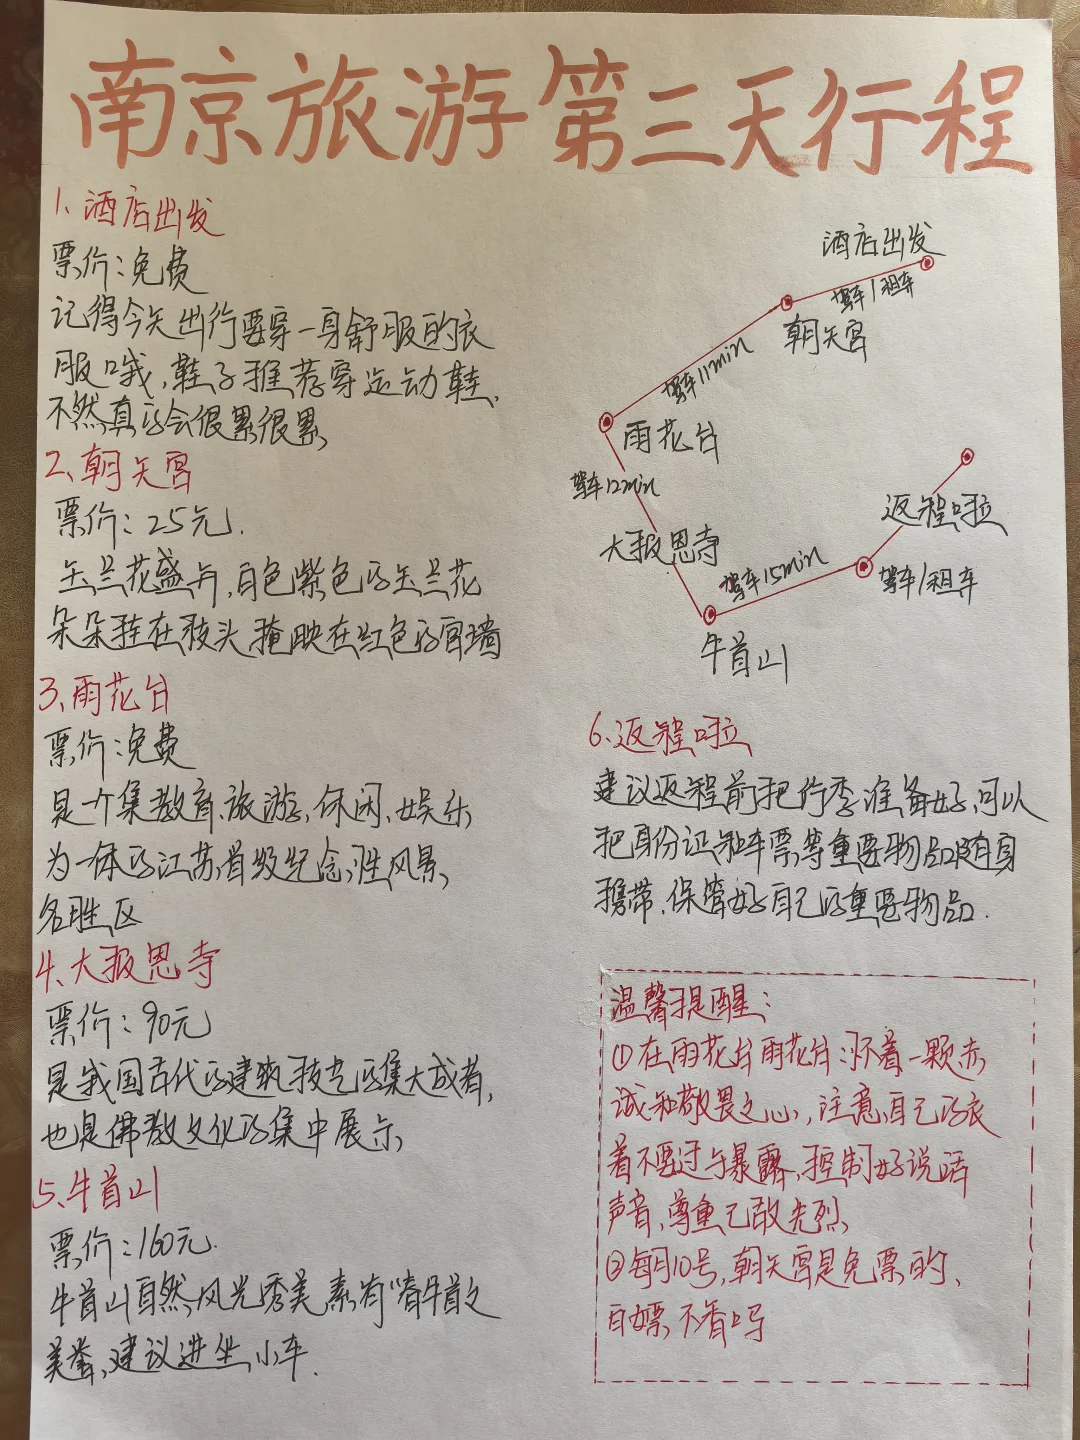 南京旅游第三天行程
1、酒店出发
票价:免费
记得今天出行要穿一身舒服的衣
服哦,鞋子推荐穿运动鞋、
不然真的会很累很累
2、朝天宫
票价:25元.
玉兰花盛开,白色紫色的玉兰花
朵朵挂在枝头掩映在红色的宫墙
3、雨花台
票价:免费
是一个集教育、旅游、休闲、娱乐
为一体的江苏省级纪念性风景
名胜区
4、大报恩寺
票价:90元
是我国古代的建筑技艺的集大成者,
也是佛教文化的集中展示
5、牛首山
票价:160元.
牛首山自然风光秀美,素有“春牛首之
美誉,建议进坐小车.
酒店出发
驾车/租车
朝天宫
驾车11min
雨花台
驾车12min
大报恩寺
驾车15min
牛首山
驾车/租车
返程啦
6、返程啦
建议返程前把行李准备好,可以
把身份证和车票等重要物品随身
携带.保管好自己的重要物品.
温馨提醒:
①在雨花台雨花台:怀着一颗赤
诚和敬畏之心,注意自己的衣
着不要过与暴露,控制好说话
声音,尊重已故先烈
②每月10号,朝天宫是免票的、
白嫖不香吗